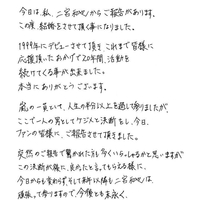 今日は、私、二宮和也からご報告があります。
この度、結婚をさせて頂く事になりました。
1999年にデビューさせて頂き これまで皆様に
応援頂いたおかげで20年間、活動を
続けてくる事が出来ました。
本当にありがとうございます。
嵐の一員として、人生の半分以上を過して参りましたが、
ここで一人の男としてケジメと決断をし、今日、
ファンの皆様に、ご報告させて頂きました。
突然のご報告で驚かれた方も多くいらっしゃるかと思いますが
この決断が後に、良かったと言ってもらえる様に、
今日からも変わらず、そして来年以降も二宮和也は、
頑張って参りますので、今後とも末永く、